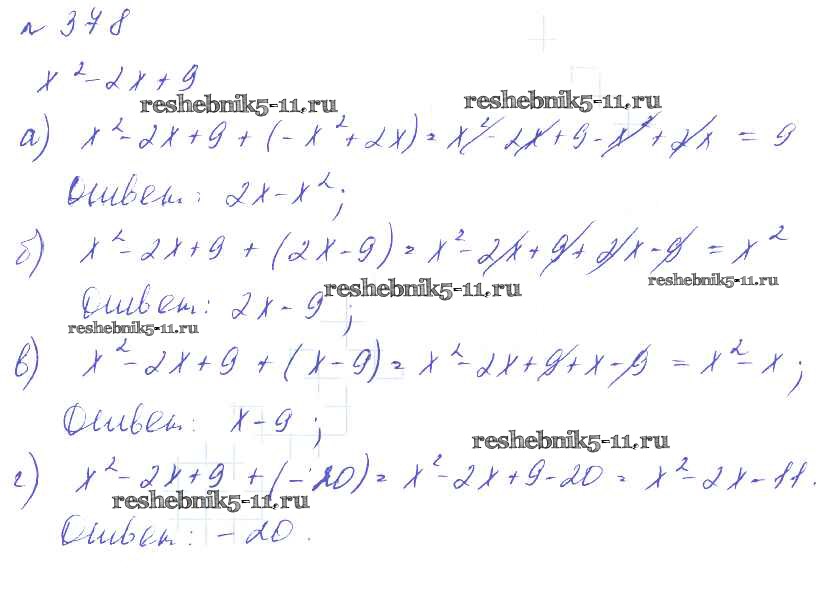 № 378
x² - 2x + 9
reshebnik5-11.ru reshebnik5-11.ru
а) x² - 2x + 9 + (-x² + 2x) = x² - 2x + 9 - x² + 2x = 9
Ответ: 2x - x²;
б) x² - 2x + 9 + (2x - 9) = x² - 2x + 9 + 2x - 9 = x²
reshebnik5-11.ru reshebnik5-11.ru
Ответ: 2x - 9;
reshebnik5-11.ru
в) x² - 2x + 9 + (x - 9) = x² - 2x + 9 + x - 9 = x² - x;
Ответ: x - 9;
reshebnik5-11.ru
г) x² - 2x + 9 + (-20) = x² - 2x + 9 - 20 = x² - 2x - 11.
reshebnik5-11.ru
Ответ: -20.